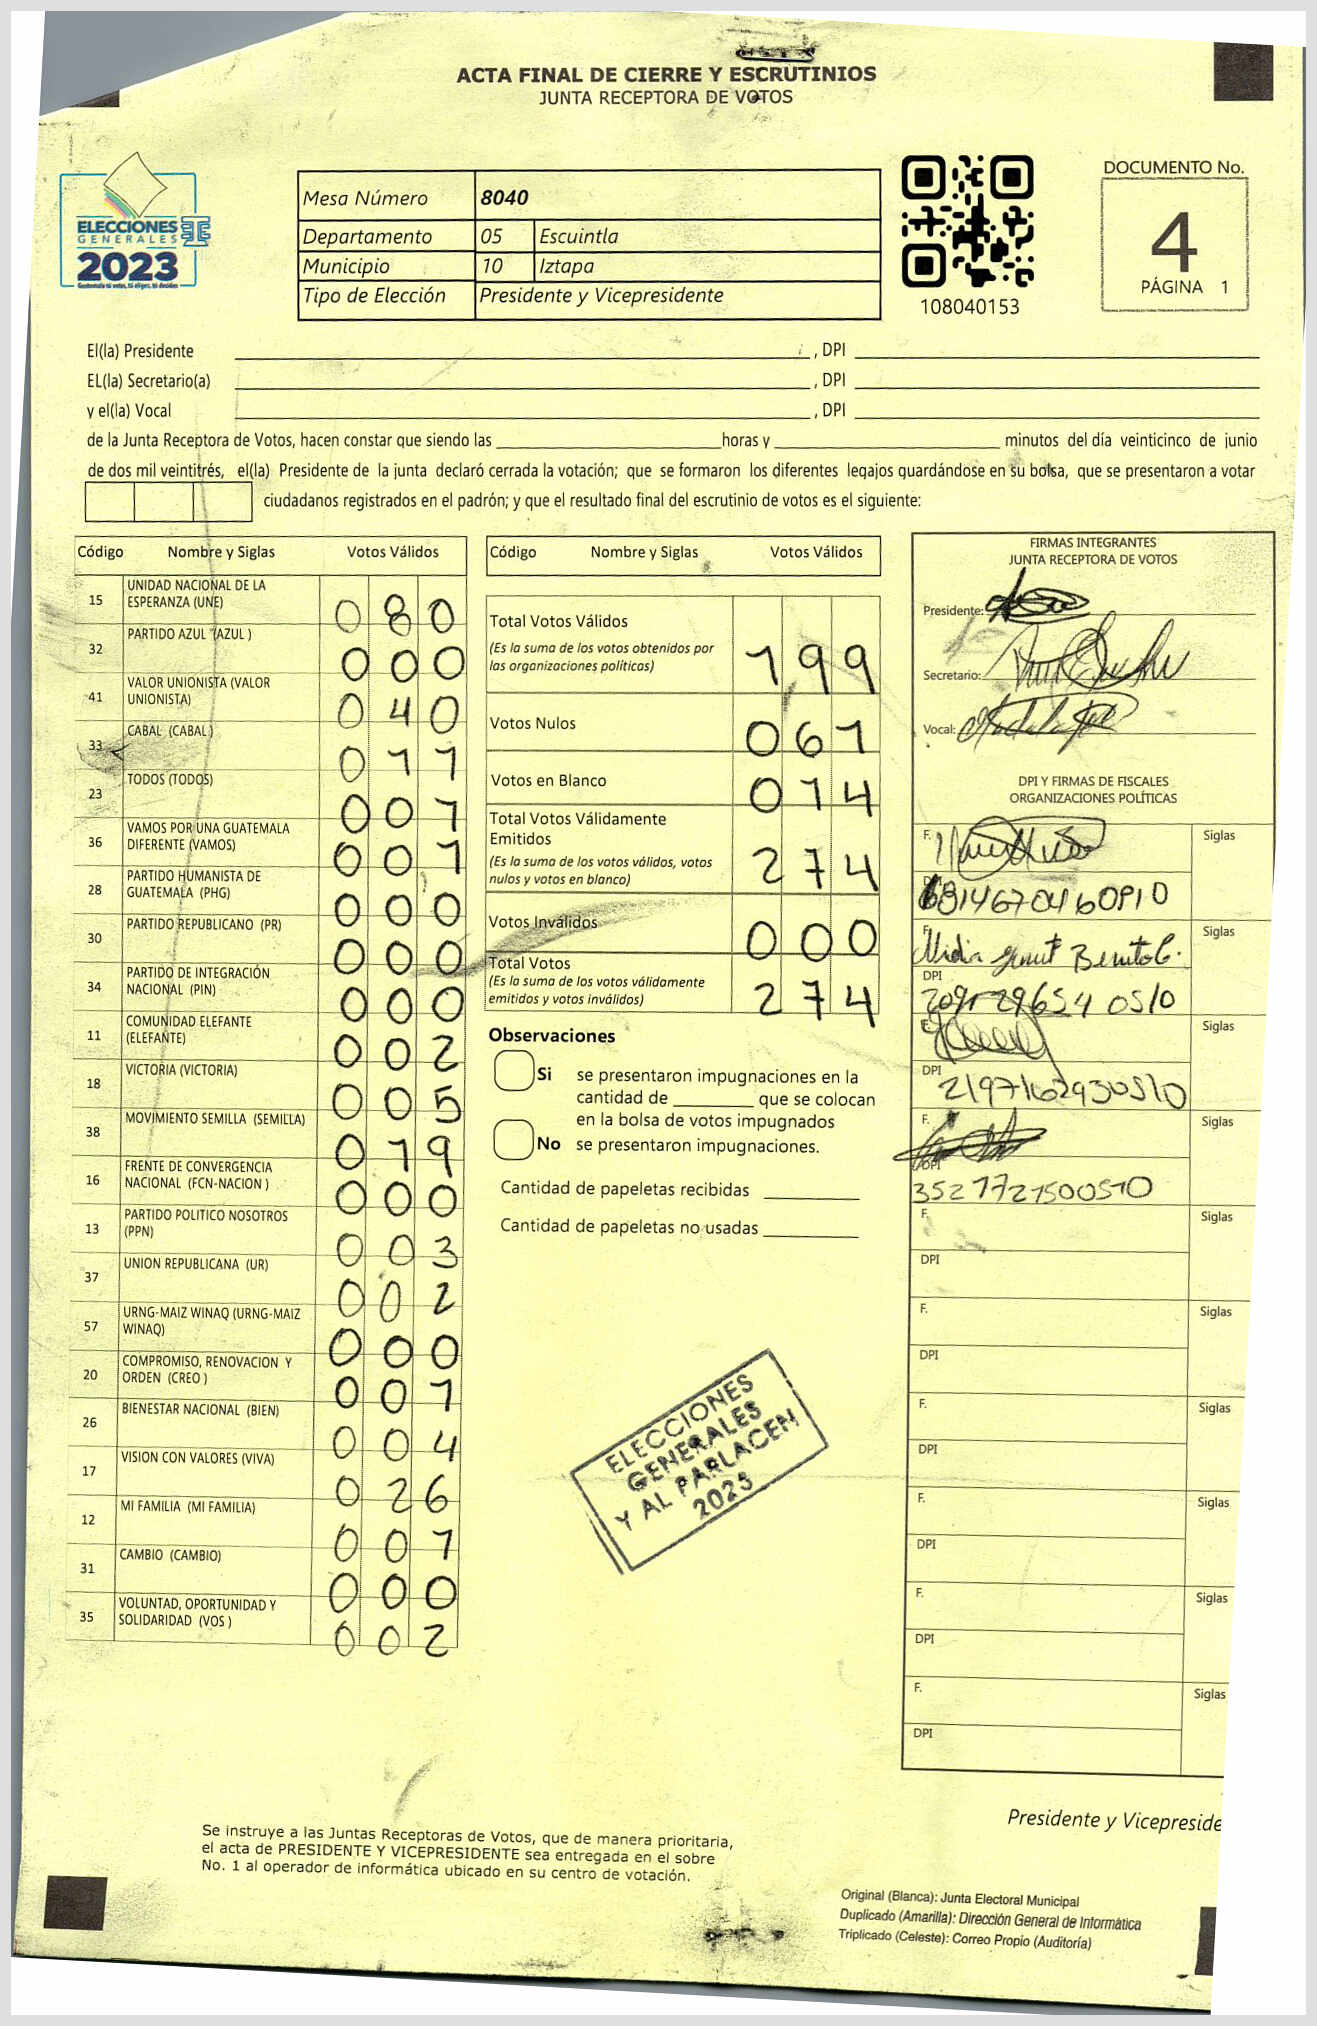 ACTA FINAL DE CIERRE Y ESCRUTINIOS
JUNTA RECEPTORA DE VOTOS
ELECCIONES
GENERALES
2023
Guatemala tú votas, tú eliges, tú decides
Mesa Número 8040
Departamento 05 Escuintla
Municipio 10 Iztapa
Tipo de Elección Presidente y Vicepresidente
108040153
DOCUMENTO No.
4
PÁGINA 1
El(la) Presidente , DPI
EL(la) Secretario(a) , DPI
y el(la) Vocal , DPI
de la Junta Receptora de Votos, hacen constar que siendo las horas y minutos del día veinticinco de junio
de dos mil veintitrés, el(la) Presidente de la junta declaró cerrada la votación; que se formaron los diferentes legajos guardándose en su bolsa, que se presentaron a votar
ciudadanos registrados en el padrón; y que el resultado final del escrutinio de votos es el siguiente:
Código Nombre y Siglas Votos Válidos
15 UNIDAD NACIONAL DE LA
ESPERANZA (UNE) 080
32 PARTIDO AZUL (AZUL ) 000
41 VALOR UNIONISTA (VALOR
UNIONISTA) 040
33 CABAL (CABAL ) 011
23 TODOS (TODOS) 001
36 VAMOS POR UNA GUATEMALA
DIFERENTE (VAMOS) 001
28 PARTIDO HUMANISTA DE
GUATEMALA (PHG) 000
30 PARTIDO REPUBLICANO (PR) 000
34 PARTIDO DE INTEGRACIÓN
NACIONAL (PIN) 000
11 COMUNIDAD ELEFANTE
(ELEFANTE) 002
18 VICTORIA (VICTORIA) 005
38 MOVIMIENTO SEMILLA (SEMILLA) 019
16 FRENTE DE CONVERGENCIA
NACIONAL (FCN-NACION ) 000
13 PARTIDO POLITICO NOSOTROS
(PPN) 003
37 UNION REPUBLICANA (UR) 002
57 URNG-MAIZ WINAQ (URNG-MAIZ
WINAQ) 000
20 COMPROMISO, RENOVACION Y
ORDEN (CREO ) 001
26 BIENESTAR NACIONAL (BIEN) 004
17 VISION CON VALORES (VIVA) 026
12 MI FAMILIA (MI FAMILIA) 001
31 CAMBIO (CAMBIO) 000
35 VOLUNTAD, OPORTUNIDAD Y
SOLIDARIDAD (VOS ) 002
Código Nombre y Siglas Votos Válidos
Total Votos Válidos
(Es la suma de los votos obtenidos por
las organizaciones políticas) 199
Votos Nulos 061
Votos en Blanco 014
Total Votos Válidamente
Emitidos
(Es la suma de los votos válidos, votos
nulos y votos en blanco) 274
Votos Inválidos 000
Total Votos
(Es la suma de los votos válidamente
emitidos y votos inválidos) 274
Observaciones
Si se presentaron impugnaciones en la
cantidad de que se colocan
en la bolsa de votos impugnados
No se presentaron impugnaciones.
Cantidad de papeletas recibidas
Cantidad de papeletas no usadas
ELECCIONES
GENERALES
Y AL PARLACEN
2023
FIRMAS INTEGRANTES
JUNTA RECEPTORA DE VOTOS
Presidente:
Secretario:
Vocal:
DPI Y FIRMAS DE FISCALES
ORGANIZACIONES POLÍTICAS
F. Siglas
DPI
F. Siglas
DPI
F. Siglas
DPI 2197162930510
F. Siglas
DPI 3521721500510
F. Siglas
DPI
F. Siglas
DPI
F. Siglas
DPI
F. Siglas
DPI
F. Siglas
DPI
F. Siglas
DPI
Presidente y Vicepreside
Se instruye a las Juntas Receptoras de Votos, que de manera prioritaria,
el acta de PRESIDENTE Y VICEPRESIDENTE sea entregada en el sobre
No. 1 al operador de informática ubicado en su centro de votación.
Original (Blanca): Junta Electoral Municipal
Duplicado (Amarilla): Dirección General de Informática
Triplicado (Celeste): Correo Propio (Auditoría)